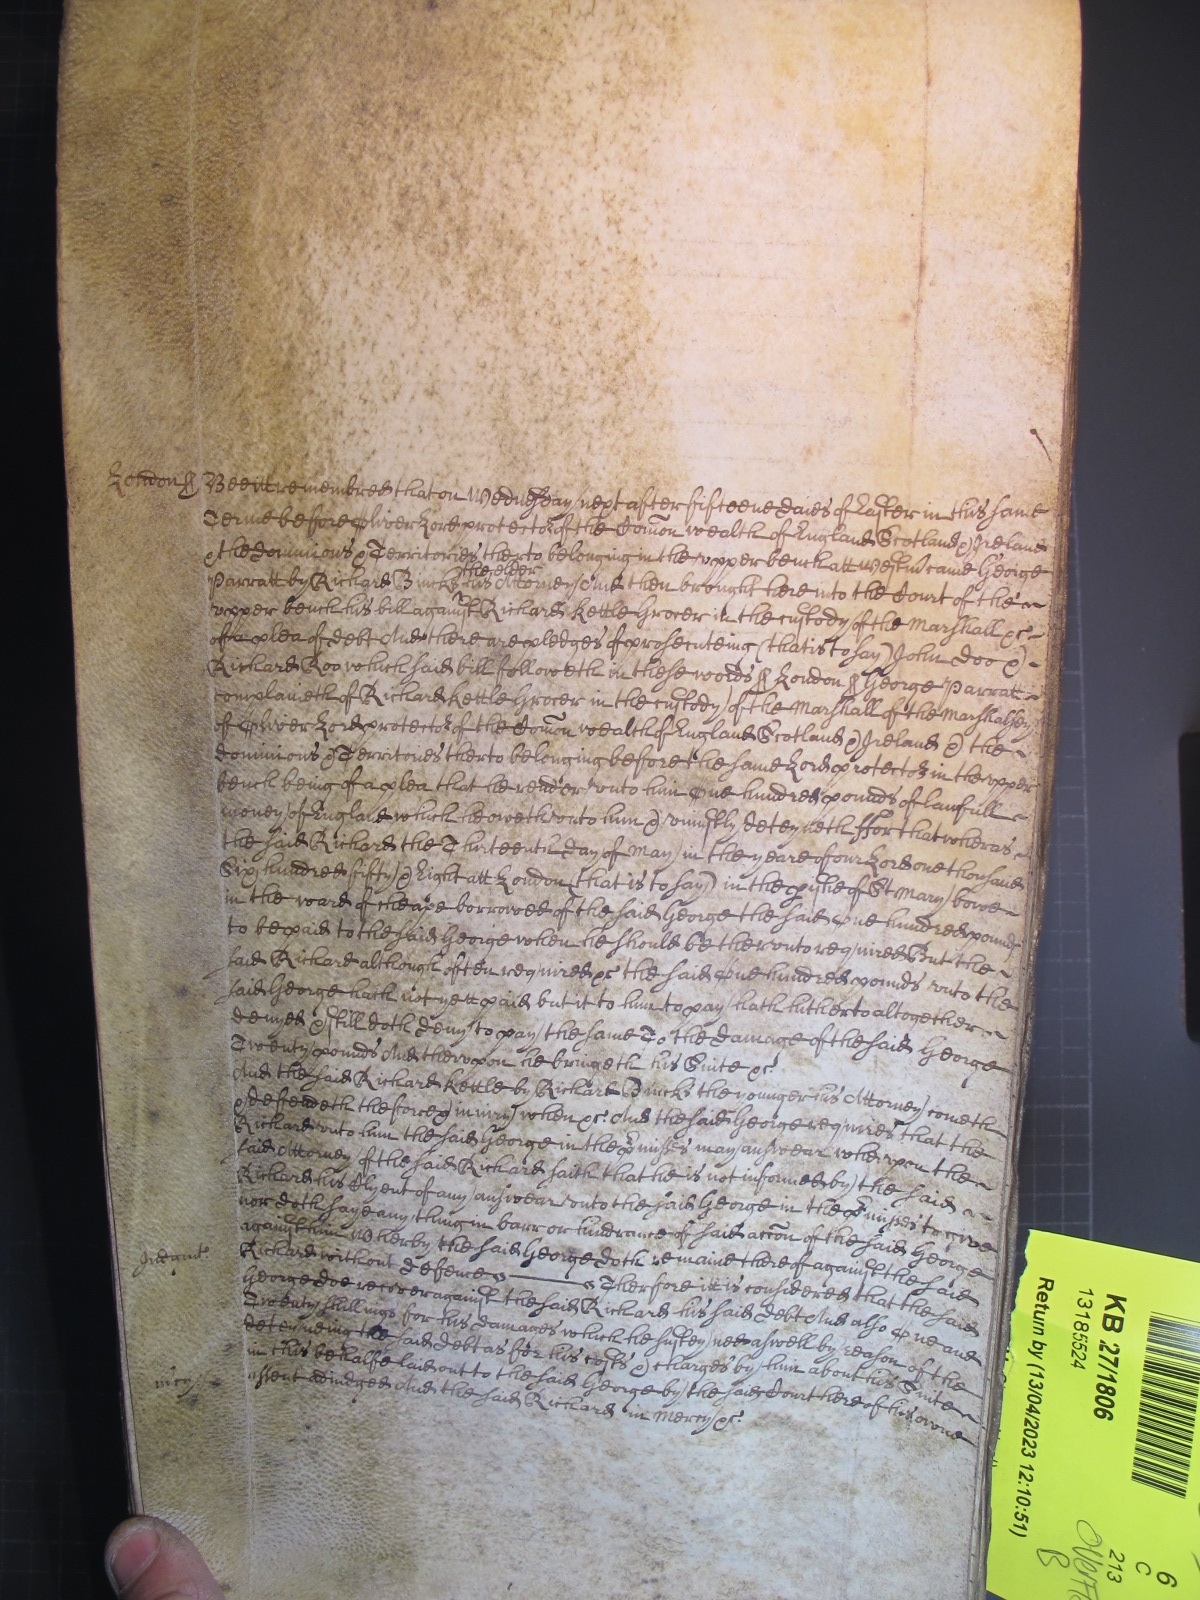 London ss Bee itt remembred that on Wednesday next after fifteene daies of Easter in this same
Terme before Oliver Lord protector of the Comon wealth of England Scotland & Ireland
& the dominions & Territories therto belonging in the vpper bench att Westm came George
the elder
Parratt by Richard Bincks his Attorney And then brought here into the Court of the
vpper bench his bill against Richard Kettle Grocer in the custody of the Marshall &c
of a plea of debt And there are pledges of prosecuteing (that is to say) John Doo &
Richard Roo which said bill followeth in these words ss London ss George Parratt
complaineth of Richard Kettle Grocer in the custody of the Marshall of the Marshalsey
of Oliver Lord protector of the Comon wealth of England Scotland & Ireland & the
dominions & Territories therto belonging before the same Lord protector in the vpper
bench being of a plea that he render vnto him One hundred pounds of lawfull
money of England which he oweth vnto him & vniustly deteyneth ffor that wheras
the said Richard the Thirteenth day of May in the yeare of our Lord one thousand
Six hundred fifty & Eight att London (that is to say) in the pishe of St Mary bowe
in the ward of Cheape borrowed of the said George the said One hundred pounds
to be paid to the said George when he should be therevnto required But the
said Richard although often required &c the said One hundred pounds vnto the
said George hath not yett paid but it to him to pay hath hitherto altogether
denyed & still doth deny to pay the same To the damage of the said George
Twenty pounds And thervpon he bringeth his Suite &c
And the said Richard Kettle by Richard Bincks the younger his Attorney cometh
& defendeth the force & iniury when &c And the said George requires that the
Richard vnto him the said George in the pmisses may answear wherevpon the
said Attorney of the said Richard saith that he is not informed by the said
Richard his Clyent of any answear vnto the said George in the pmisses to give
nor doth saye any thing in barr or hindrance of said accon of the said George
against him Wherby the said George doth remaine thereof against the said
Judgmt Richard without defence Therfore itt is considered that the said
George doe recover against the said Richard his said debt And also One and
Twenty shillings for his damages which he susteyned aswell by reason of the
deteyneing the said debt as for his costs & charges by him about his Suite
in this behalfe laid out to the said George by the said Court here of his owne
mcy assent adiudged And the said Richard in Mercy &c
KB 27/1806
13185524
Return by (13/04/2023 12:10:51)
6
C
213
B